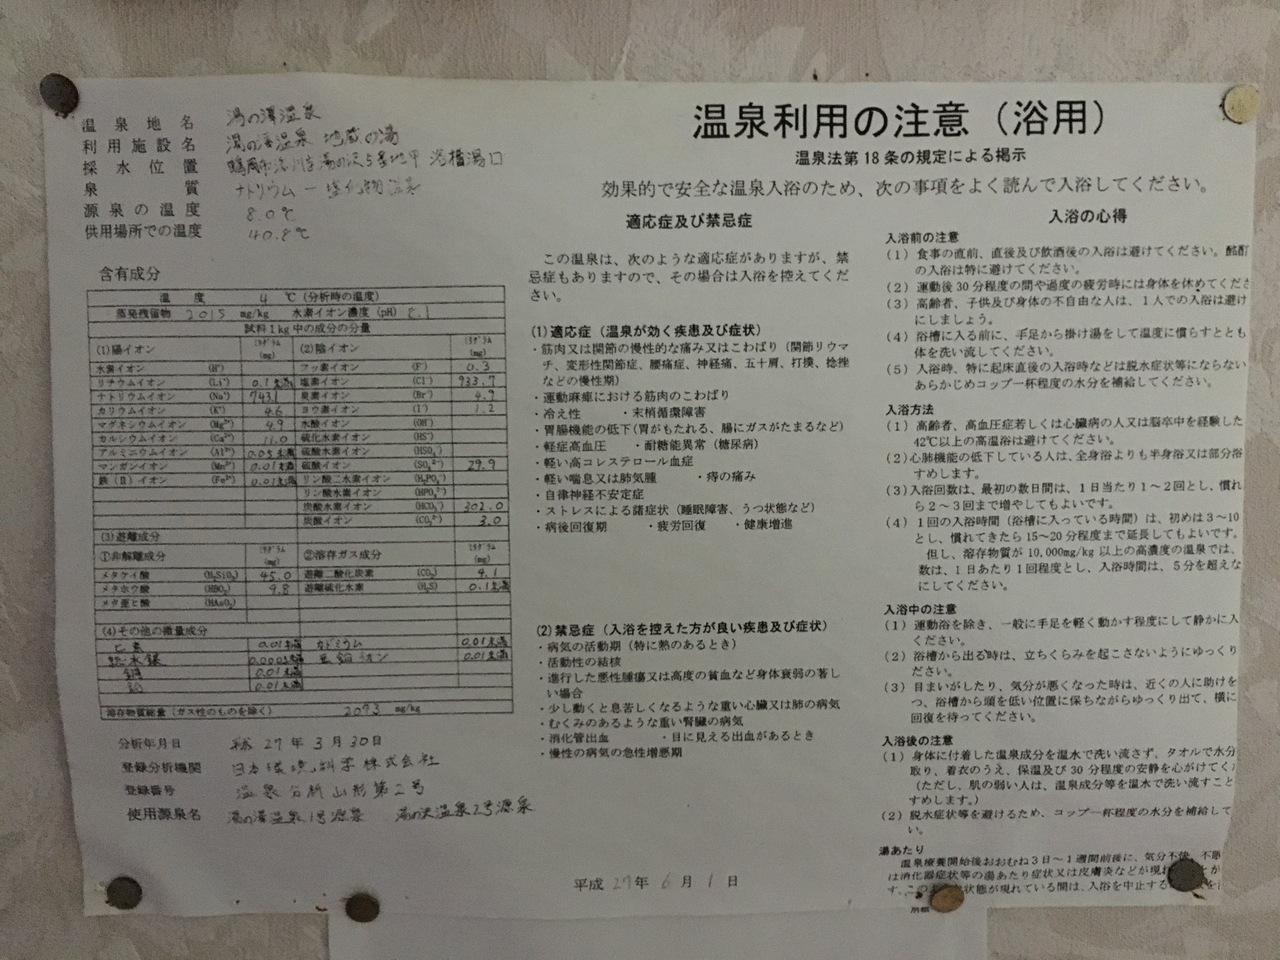 温泉地名 湯の澤温泉
利用施設名 湯の澤温泉 地蔵の湯
採水位置 鶴岡市 湯の沢 浴槽湯口
泉質 ナトリウム-塩化物温泉
源泉の温度 8.0℃
供用場所での温度 40.8℃
含有成分
温度 4 ℃(分析時の温度)
蒸発残留物 2015 mg/kg 水素イオン濃度(pH) 8.1
試料1kg中の成分の分量
(1)陽イオン ミリグラム(mg) (2)陰イオン ミリグラム(mg)
水素イオン (H⁺) フッ素イオン (F⁻) 0.3
リチウムイオン (Li⁺) 0.1未満 塩素イオン (Cl⁻) 933.7
ナトリウムイオン (Na⁺) 743.1 臭素イオン (Br⁻) 4.9
カリウムイオン (K⁺) 4.6 ヨウ素イオン (I⁻) 1.2
マグネシウムイオン (Mg²⁺) 4.9 水酸イオン (OH⁻)
カルシウムイオン (Ca²⁺) 11.0 硫化水素イオン (HS⁻)
アルミニウムイオン (Al³⁺) 0.05未満 硫酸水素イオン (HSO₄⁻)
マンガンイオン (Mn²⁺) 0.01未満 硫酸イオン (SO₄²⁻) 29.9
鉄(Ⅱ)イオン (Fe²⁺) 0.01未満 リン酸二水素イオン (H₂PO₄⁻)
リン酸水素イオン (HPO₄²⁻)
炭酸水素イオン (HCO₃⁻) 302.0
炭酸イオン (CO₃²⁻) 3.0
(3)遊離成分
①非解離成分 ミリグラム(mg) ②溶存ガス成分 ミリグラム(mg)
メタケイ酸 (H₂SiO₃) 45.0 遊離二酸化炭素 (CO₂) 4.1
メタホウ酸 (HBO₂) 9.8 遊離硫化水素 (H₂S) 0.1未満
メタ亜ヒ酸 (HAsO₂)
(4)その他の微量成分
ヒ素 0.01未満 カドミウム 0.01未満
総水銀 0.0005未満 亜鉛イオン 0.01未満
銅 0.01未満
鉛 0.01未満
溶存物質総量(ガス性のものを除く) 2093 mg/kg
分析年月日 平成27年3月30日
登録分析機関 日本環境科学株式会社
登録番号 温泉分析山形第2号
使用源泉名 湯の澤温泉1号源泉 湯の沢温泉2号源泉
温泉利用の注意(浴用)
温泉法第18条の規定による掲示
効果的で安全な温泉入浴のため、次の事項をよく読んで入浴してください。
適応症及び禁忌症
この温泉は、次のような適応症がありますが、禁
忌症もありますので、その場合は入浴を控えてくだ
さい。
(1)適応症(温泉が効く疾患及び症状)
・筋肉又は関節の慢性的な痛み又はこわばり(関節リウマ
チ、変形性関節症、腰痛症、神経痛、五十肩、打撲、捻挫
などの慢性期)
・運動麻痺における筋肉のこわばり
・冷え性 ・末梢循環障害
・胃腸機能の低下(胃がもたれる、腸にガスがたまるなど)
・軽症高血圧 ・耐糖能異常(糖尿病)
・軽い高コレステロール血症
・軽い喘息又は肺気腫 ・痔の痛み
・自律神経不安定症
・ストレスによる諸症状(睡眠障害、うつ状態など)
・病後回復期 ・疲労回復 ・健康増進
(2)禁忌症(入浴を控えた方が良い疾患及び症状)
・病気の活動期(特に熱のあるとき)
・活動性の結核
・進行した悪性腫瘍又は高度の貧血など身体衰弱の著し
い場合
・少し動くと息苦しくなるような重い心臓又は肺の病気
・むくみのあるような重い腎臓の病気
・消化管出血 ・目に見える出血があるとき
・慢性の病気の急性増悪期
平成27年6月1日
入浴の心得
入浴前の注意
(1)食事の直前、直後及び飲酒後の入浴は避けてください。酩酊
の入浴は特に避けてください。
(2)運動後30分程度の間や過度の疲労時には身体を休めてくださ
(3)高齢者、子供及び身体の不自由な人は、1人での入浴は避け
にしましょう。
(4)浴槽に入る前に、手足から掛け湯をして温度に慣らすととも
体を洗い流してください。
(5)入浴時、特に起床直後の入浴時などは脱水症状等にならない
あらかじめコップ一杯程度の水分を補給してください。
入浴方法
(1)高齢者、高血圧症若しくは心臓病の人又は脳卒中を経験した
42℃以上の高温浴は避けてください。
(2)心肺機能の低下している人は、全身浴よりも半身浴又は部分浴
すめします。
(3)入浴回数は、最初の数日間は、1日当たり1~2回とし、慣れ
ら2~3回まで増やしてもよいです。
(4)1回の入浴時間(浴槽に入っている時間)は、初めは3~10
とし、慣れてきたら15~20分程度まで延長してもよいです。
但し、溶存物質が10,000mg/kg以上の高濃度の温泉では、
数は、1日あたり1回程度とし、入浴時間は、5分を超えな
にしてください。
入浴中の注意
(1)運動浴を除き、一般に手足を軽く動かす程度にして静かに入
ください。
(2)浴槽から出る時は、立ちくらみを起こさないようにゆっくり
ださい。
(3)目まいがしたり、気分が悪くなった時は、近くの人に助けを
つ、浴槽から頭を低い位置に保ちながらゆっくり出て、横に
回復を待ってください。
入浴後の注意
(1)身体に付着した温泉成分を温水で洗い流さず、タオルで水分
取り、着衣のうえ、保温及び30分程度の安静を心がけてく
(ただし、肌の弱い人は、温泉成分等を温水で洗い流すこと
すめします。)
(2)脱水症状等を避けるため、コップ一杯程度の水分を補給して
い。
湯あたり
温泉療養開始後おおむね3日~1週間前後に、気分不快、不眠
は消化器症状等の湯あたり症状又は皮膚炎などが現れ
状態が現れている間は、入浴を中止する